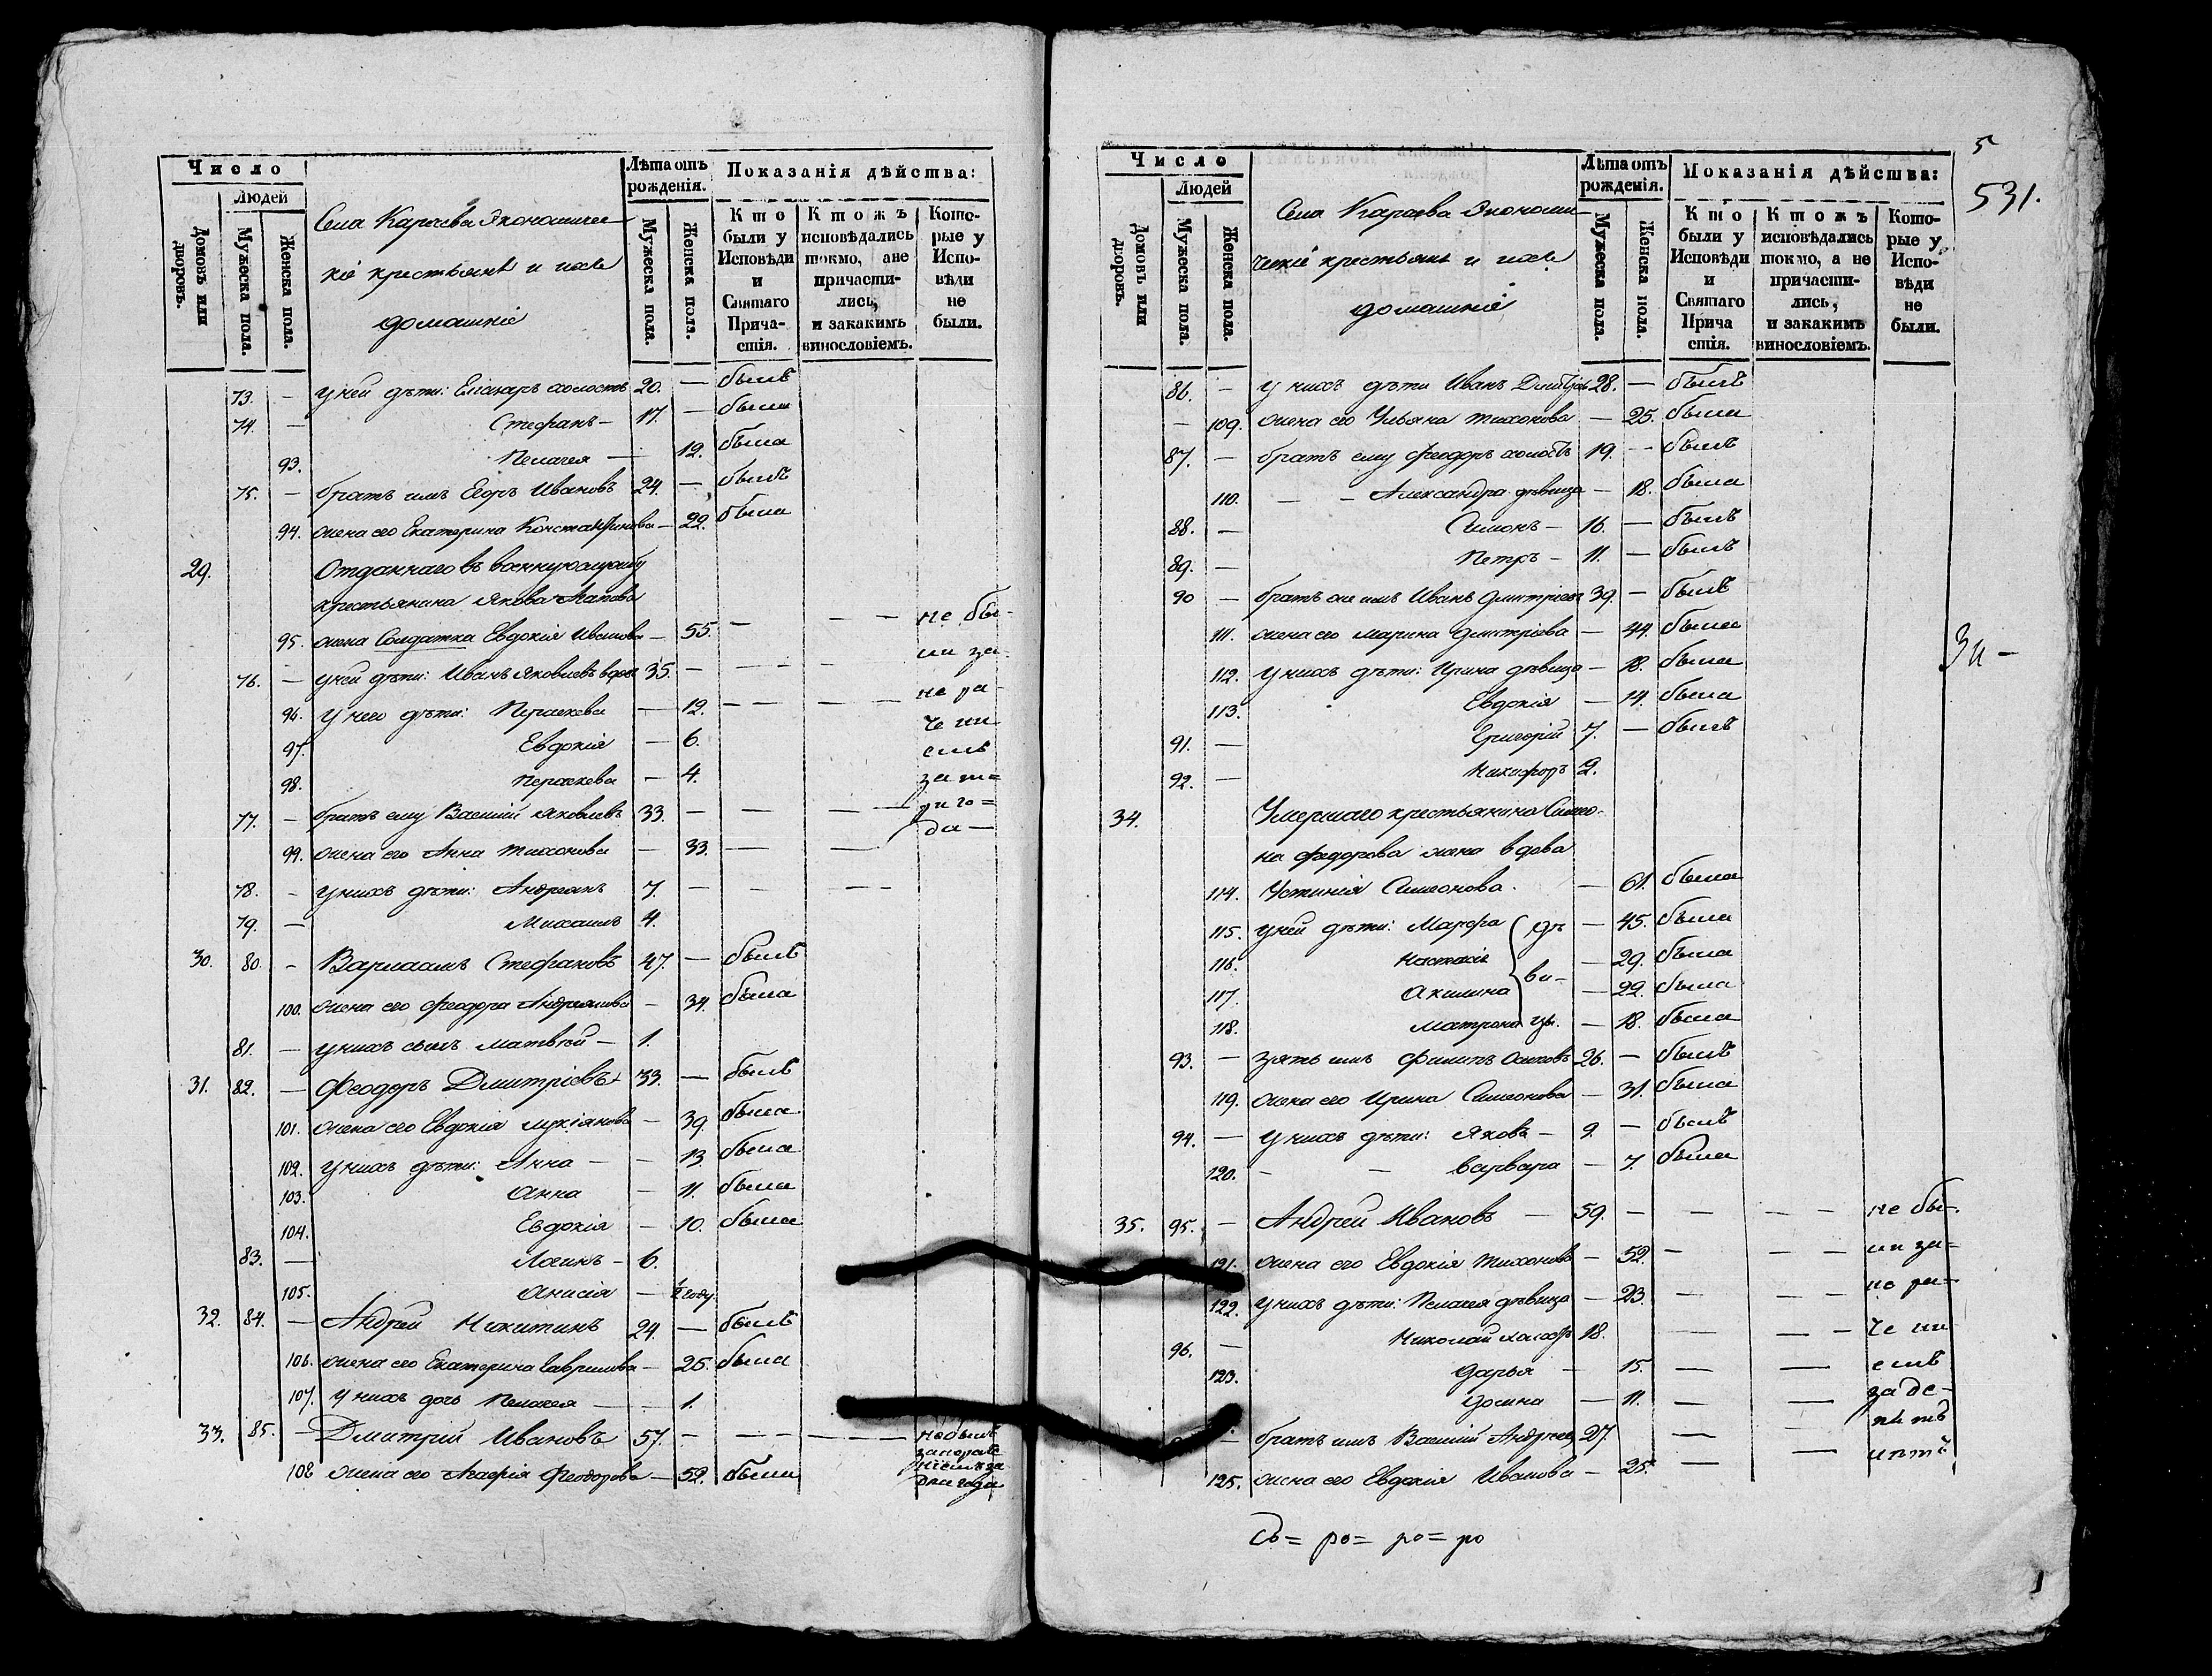 Число
Людей
Домовъ или дворовъ.
Мужеска пола.
Женска пола.
Села Карачева Экономичес-
кіе крестьяне и ихъ
домашніе
Лѣта отъ рожденія.
Мужеска пола.
Женска пола.
Показанія дѣйства:
Кто были у Исповѣди и Святаго Причастія.
Ктожъ исповѣдались токмо, а не причастились, и закакимъ винословіемъ.
Которые у Исповѣди не были.
73. — у ней дѣти: холостъ 20. — былъ
74. — Стефанъ — 17. — былъ
93. Пелагея — 12. была
75. — братъ имъ Егоръ Ивановъ 24. — былъ
94. жена его Екатерина Константинова — 22. была
29. Отданнаго въ военную службу
крестьянина Якова
95. жена Солдатка Евдокія Иванова — 55. — — — не бы-
76. — у ней дѣти: Иванъ Яковлевъ вдовъ 35. — — — — ли за
96. у него дѣти: Параскева — 12. — — — — не ра-
97. Евдокія — 6. че ни
98. Параскева — 4. емъ
77. — братъ ему Василій Яковлевъ 33. — — — —
99. жена его Анна Тихонова — 33. — —
78. — у нихъ дѣти: Андреянъ 7. — — — —
79. — Михаилъ 4.
30. 80. — Варлаамъ Стефановъ 47. — былъ
100. жена его Феодора Андреянова — 34. была
81. — у нихъ сынъ Матвѣй — 1.
31. 82. — Феодоръ Дмитріевъ 33. — былъ
101. жена его Евдокія Лукіянова — 39. была
102. у нихъ дѣти: Анна — — 13. была
103. Анна — 11. была
104. Евдокія — 10. была
83. — — 6.
105. Анисія — ½ году
32. 84. — Андрей Никитинъ 24. — былъ
106. жена его Екатерина Гаврилова — 25. была
107. у нихъ дочь Пелагея — — 1.
33. 85. — Дмитрій Ивановъ 57. — — — — — не былъ
108 жена его Агафія Феодорова — 52. была
5
531.
Число
Людей
Домовъ или дворовъ.
Мужеска пола.
Женска пола.
Села Карачева Экономи-
ческіе крестьяне и ихъ
домашніе
Лѣта отъ рожденія.
Мужеска пола.
Женска пола.
Показанія дѣйства:
Кто были у Исповѣди и Святаго Причастія.
Ктожъ исповѣдались токмо, а не причастились, и закакимъ винословіемъ.
Которые у Исповѣди не были.
86. — у нихъ дѣти Иванъ 28. — былъ
— 109. жена его Ульяна Тихонова — 25. была
87. — братъ ему Феодоръ холостъ 19. — былъ
110. — — Александра дѣвица — 18. была
88. — Симонъ — 16. — былъ
89. — Петръ — 11. — былъ
90 — братъ же имъ Иванъ Дмитріевъ 39. — былъ
111. жена его Марина Дмитріева — 44. была
112. у нихъ дѣти: Ирина дѣвица — 18. была
113. Евдокія — 14. была
91. — Григорій 7. — былъ
92. — Никифоръ 2.
34. Умершаго крестьянина Симео-
на Федорова жена вдова
114. Устинія Симеонова. — 61. была
115. у ней дѣти: Марфа дѣ — 45. была
116. Настасія — 29. была
117. Акилина ви- — 22. была
118. Матрона цы. — 18. была
93. — зять имъ Филипъ Осиповъ 26. — былъ
119. жена его Ирина Симеонова — 31. была
94. — у нихъ дѣти: Яковъ — 9. — былъ
120. — — Варвара — 7. была
35. 95. — Андрей Ивановъ — 59. — — — — не бы-
121. жена его Евдокія Тихонова — 52. — — — ли за-
122. у нихъ дѣти: Пелагея дѣвица — 23. — — не ра-
96. — Николай 18. — — — че ни
123. Дарья — 15. — — емъ
Домна — 11. — —
— братъ имъ Василій Андреевъ 27. — —
125. жена его Евдокія Иванова — 25. — —